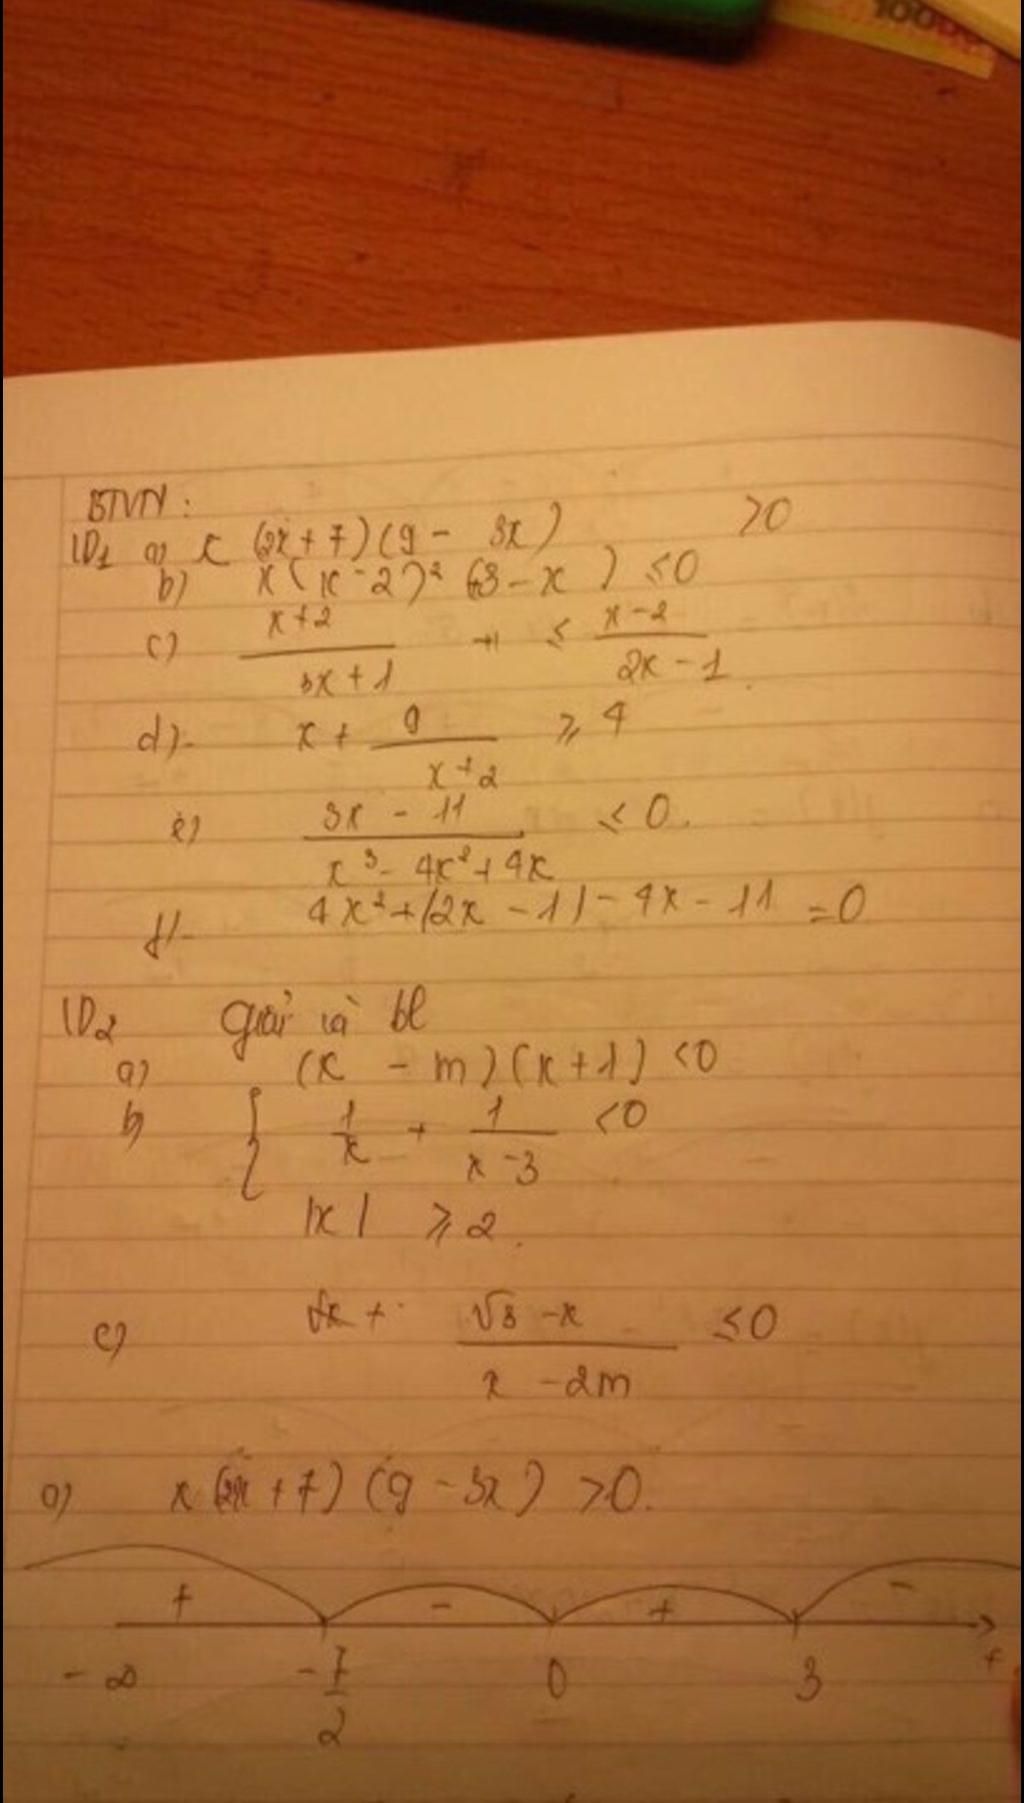 1000
BTVN:
ID1 a) x (2x+7)(9- 3x) >0
b) x(x-2)² (3-x) ≤0
c) x+2/3x+1 ≤ x-2/2x-1
d) x + 9/x+2 ≥ 4
e) 3x-11/x³-4x²+4x ≤0.
f) 4x²+|2x-1|-4x-11 =0
ID2 Giải và bl
a) (x - m)(x+1) <0
b) { 1/x + 1/x-3 <0
|x| ≥ 2.
c) √3-x/x-2m ≤0
a) x(2x+7)(9-3x) >0.
+ - + -
-∞ -7/2 0 3 +